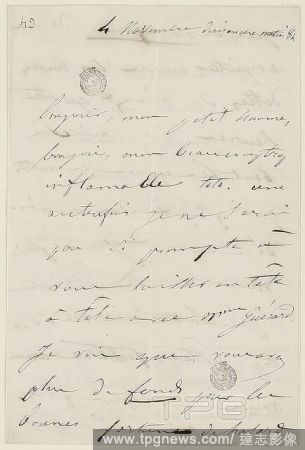 4 Novembre dimanche matin 8h
Bonjour, mon petit homme,
bonjour, mon beaucoup trop
inflamable toto. Une
autrefois je ne serai
pas si prompte à
vous laisser en tête
à tête avec Mme Guérard
Je vois que vous avez
plus de fonds pour les
bonnes fortunes de
TPG
www.tpgnews.com/達志影像